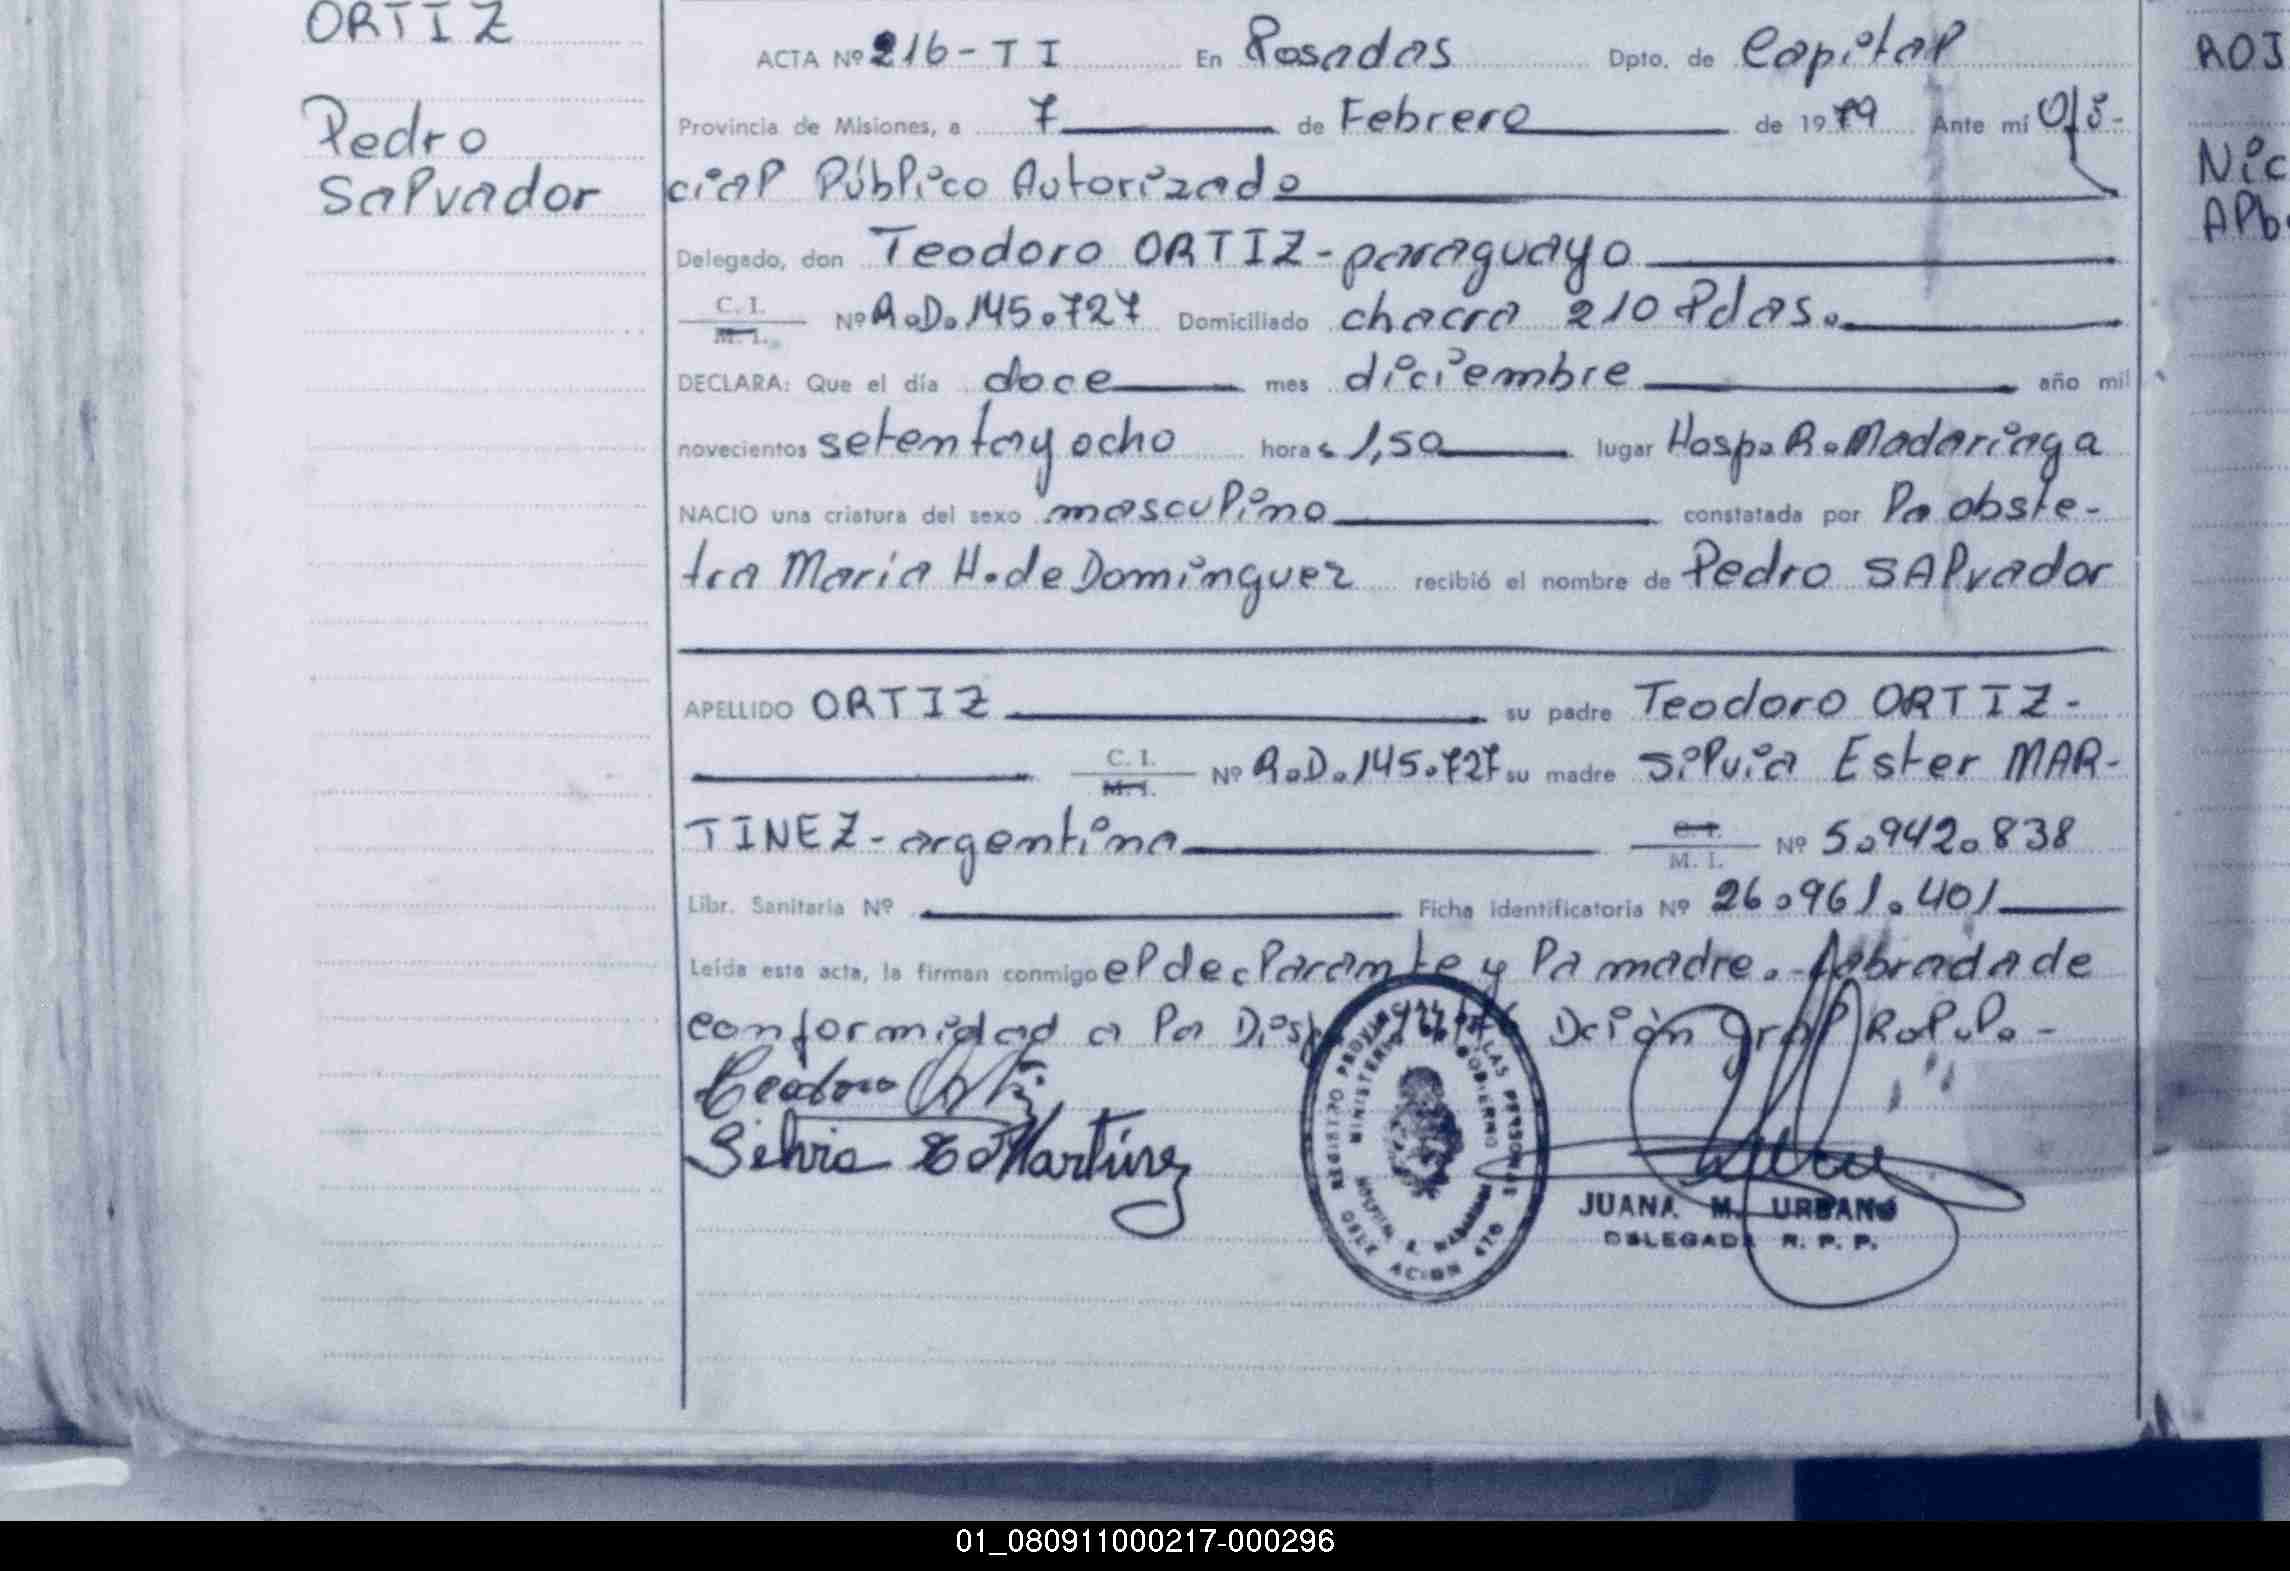 ORTIZ
Pedro
Salvador
ACTA Nº 216-TI En Posadas Dpto. de Capital
Provincia de Misiones, a 7 de Febrero de 1979 Ante mí Ofi-
cial Público Autorizado
Delegado, don Teodoro ORTIZ - paraguayo
C. I.
M. I. Nº R.D.145.727 Domiciliado chacra 210 Pdas.
DECLARA: Que el día doce mes diciembre año mil
novecientos setenta y ocho horas 1,50 lugar Hosp. R. Madariaga
NACIO una criatura del sexo masculino constatada por la obste-
tra María H. de Dominguez recibió el nombre de Pedro SAlvador
APELLIDO ORTIZ su padre Teodoro ORTIZ-
C. I.
M. I. Nº R.D.145.727 su madre Silvia Ester MAR-
TINEZ - argentina C. I.
M. I. Nº 5.942.838
Libr. Sanitaria Nº Ficha identificatoria Nº 26.961.401
Leída esta acta, la firman conmigo el declarante y la madre.- Labrada de
conformidad a la Disp. Dción Gral R.P.P.-
Teodoro Ortiz
Silvia E. Martínez
REGISTRO PROVINCIAL DE LAS PERSONAS
MINISTERIO DE GOBIERNO
DELEGACION
JUANA M. URBANO
DELEGADA R. P. P.
ROJ
Nic
Alb
01_080911000217-000296